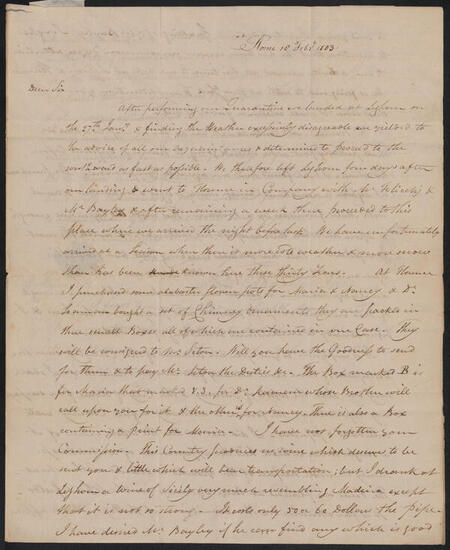 Rome 10 Feb.y 1803.
Dear Sir
After performing our Quarantine we landed at Leghorn on
the 27th Jany & finding the Weather excessively disagreeable we yielded to
the advice of all our & determined to proceed to the
southward as fast as possible. We therefore left Leghorn four days after
our landing & went to Florence in Company with Mr. Filicchi &
Mr Bayley & after remaining a week there proceeded to this
place where we arrived the night before last. We have unfortunately
arrived at a Season when there is more cold weather & more snow
than has been known here these thirty Years. At Florence
I purchased some alabaster flower pots for Maria & Nancy & Dr.
bought a set of Chimney ornaments they are packed in
three small Boxes all of which are contained in one Case. They
will be consigned to Mr. Seton. Will you have the Goodness to send
for them & to pay Mr. Seton the Duties &c. The Box marked B is
for Maria that marked S. for Dr. whose Brother will
call upon you for it & the other for Nancy. There is also a Box
containing a print for Maria. I have not forgotten your
Commission. This Country produces no wine which deserves to be
sent you & little which will bear transportation; but I drank at
Leghorn a wine of Sicily very much resembling Madeira except
that it is not so strong. It costs only 50 or 60 Dollars the pipe.
I have desired Mr. Bayley if he can find any which is good